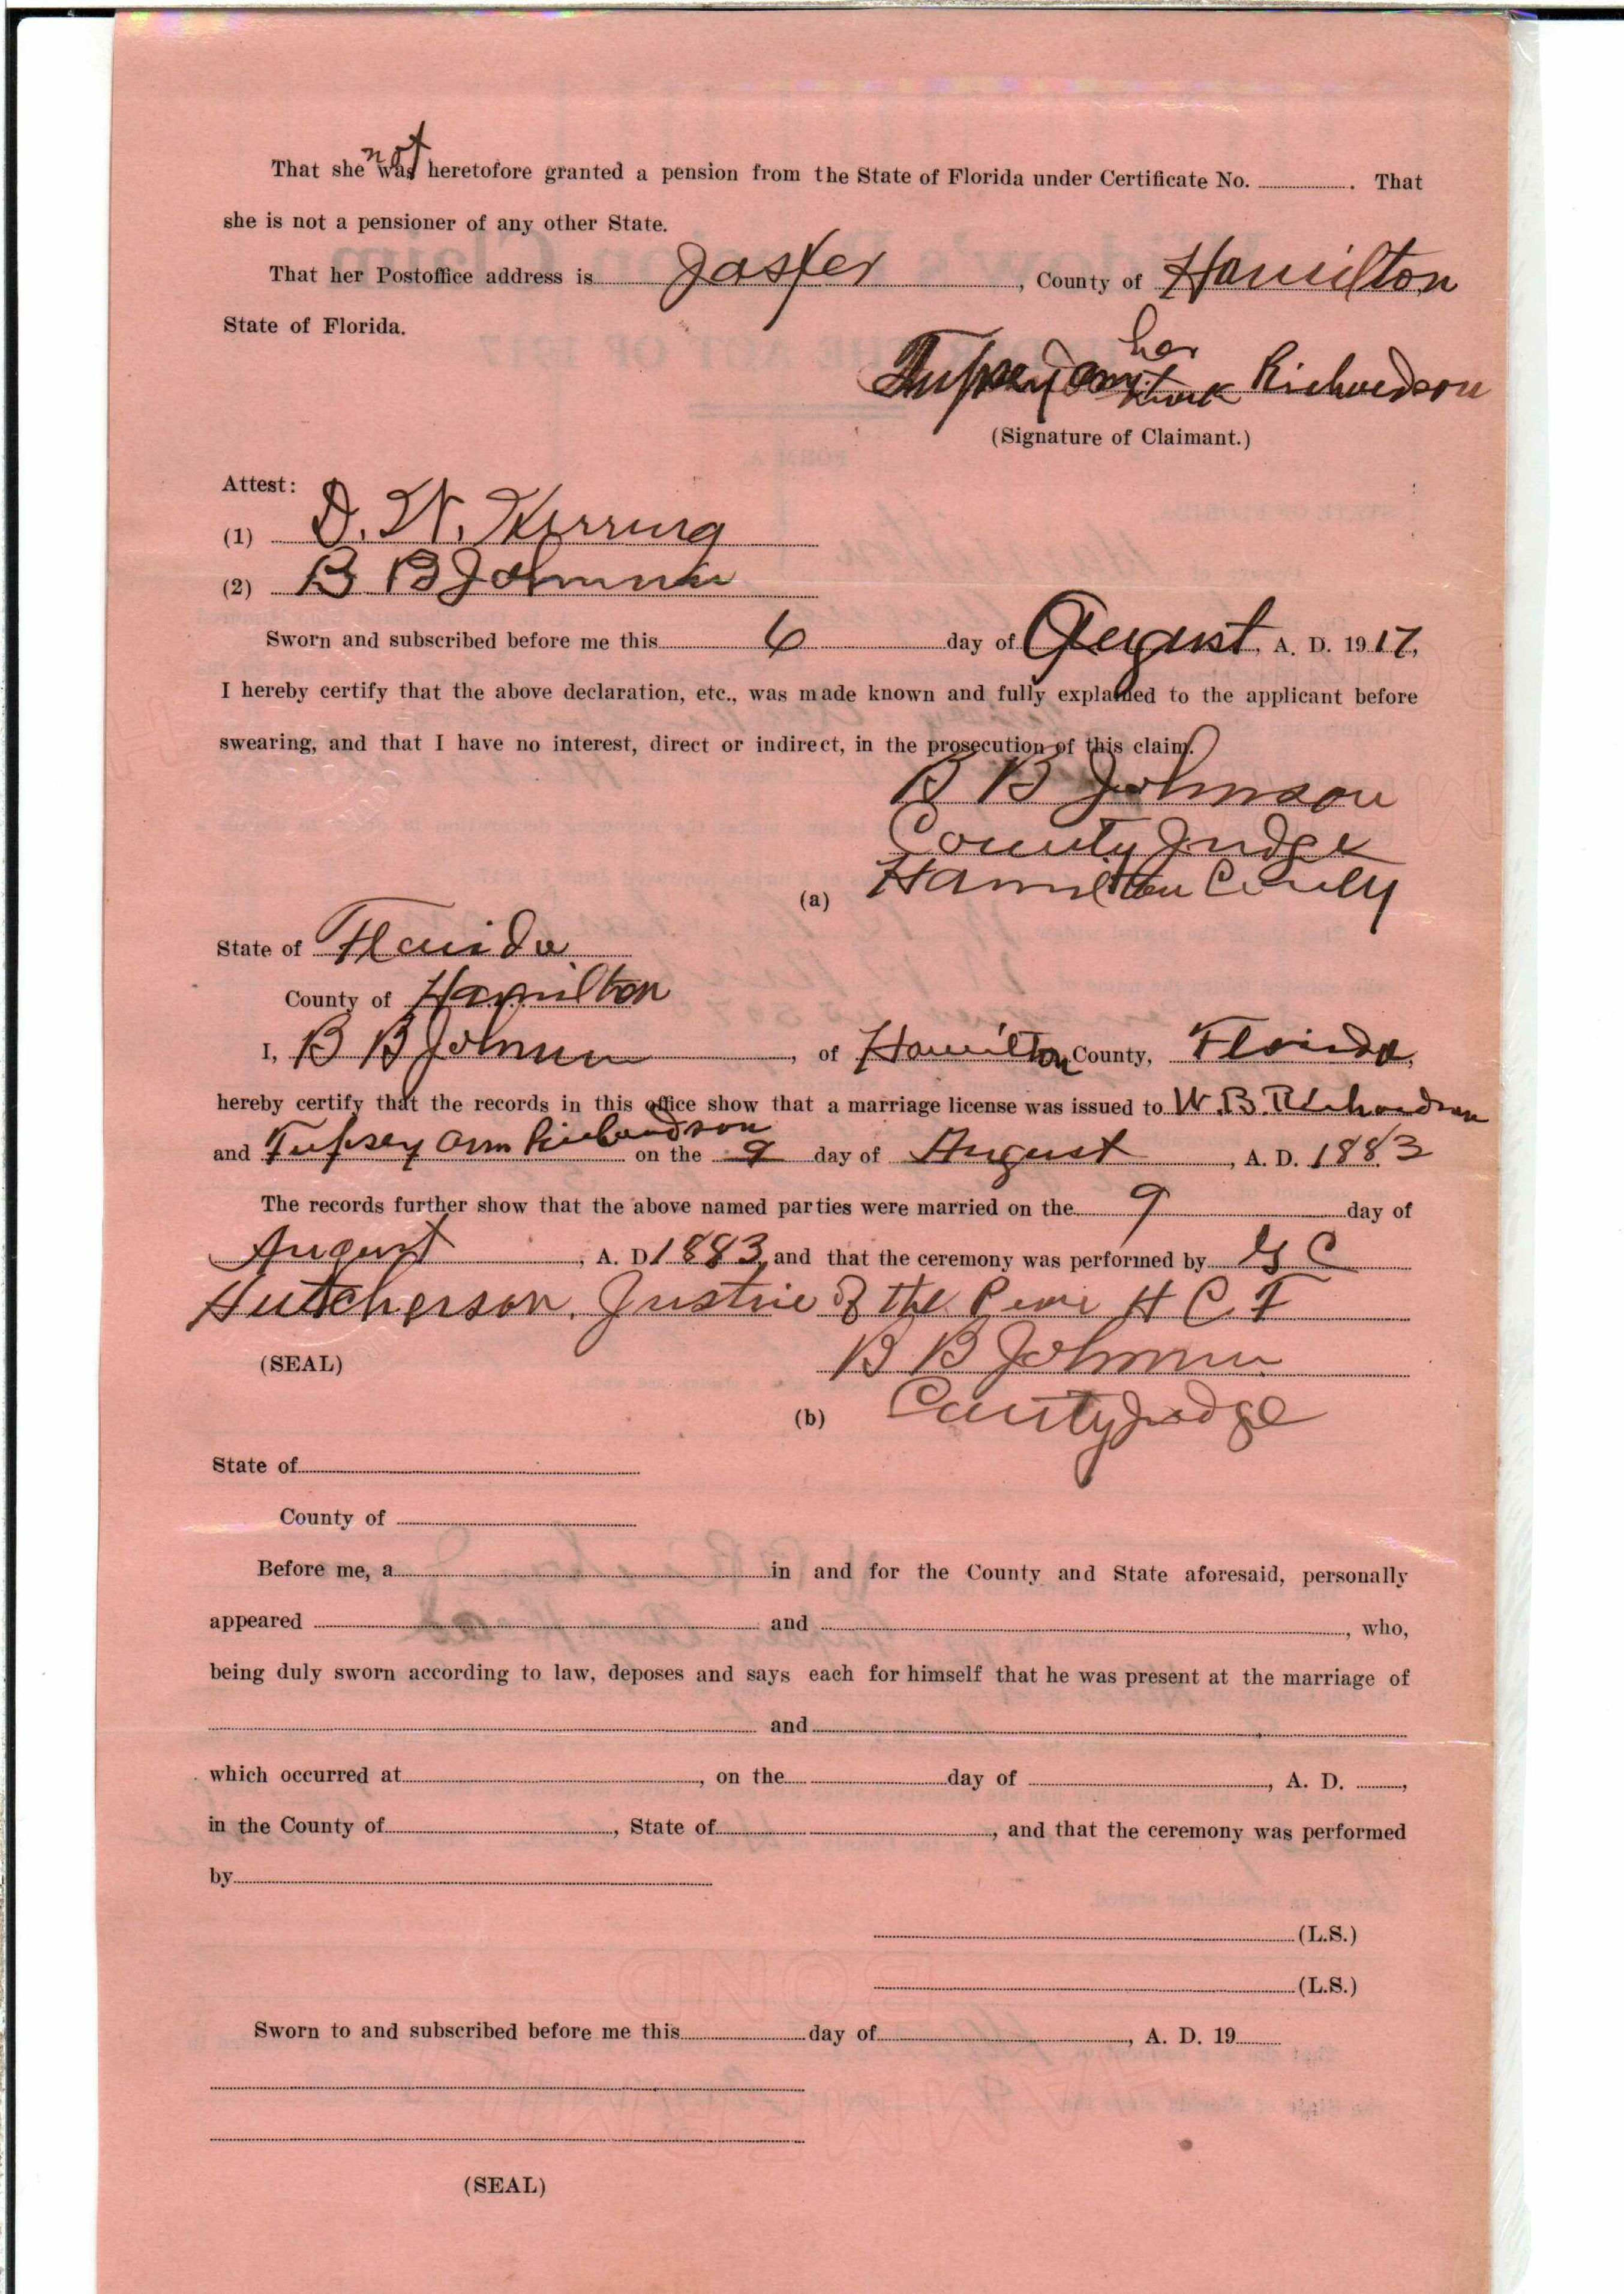 That she was not heretofore granted a pension from the State of Florida under Certificate No. .......... That
she is not a pensioner of any other State.
That her Postoffice address is Jasper, County of Hamilton
State of Florida.
her
Tupsey Ann x Richardson
mark
(Signature of Claimant.)
Attest:
(1) D. W. Herring
(2) B B Johnson
Sworn and subscribed before me this 6 day of August, A. D. 1917,
I hereby certify that the above declaration, etc., was made known and fully explained to the applicant before
swearing, and that I have no interest, direct or indirect, in the prosecution of this claim.
B B Johnson
County Judge
(a) Hamilton County
State of Florida
County of Hamilton
I, B B Johnson, of Hamilton County, Florida,
hereby certify that the records in this office show that a marriage license was issued to W. B. Richardson
and Tupsey Ann Richardson on the 9 day of August, A. D. 1883
The records further show that the above named parties were married on the 9 day of
August, A. D. 1883, and that the ceremony was performed by G C
Hutcherson, Justice of the Peace H C. F
(SEAL) B B Johnson
(b) County Judge
State of
County of
Before me, a in and for the County and State aforesaid, personally
appeared and , who,
being duly sworn according to law, deposes and says each for himself that he was present at the marriage of
and
which occurred at , on the day of , A. D. ,
in the County of , State of , and that the ceremony was performed
by
(L.S.)
(L.S.)
Sworn to and subscribed before me this day of , A. D. 19
(SEAL)